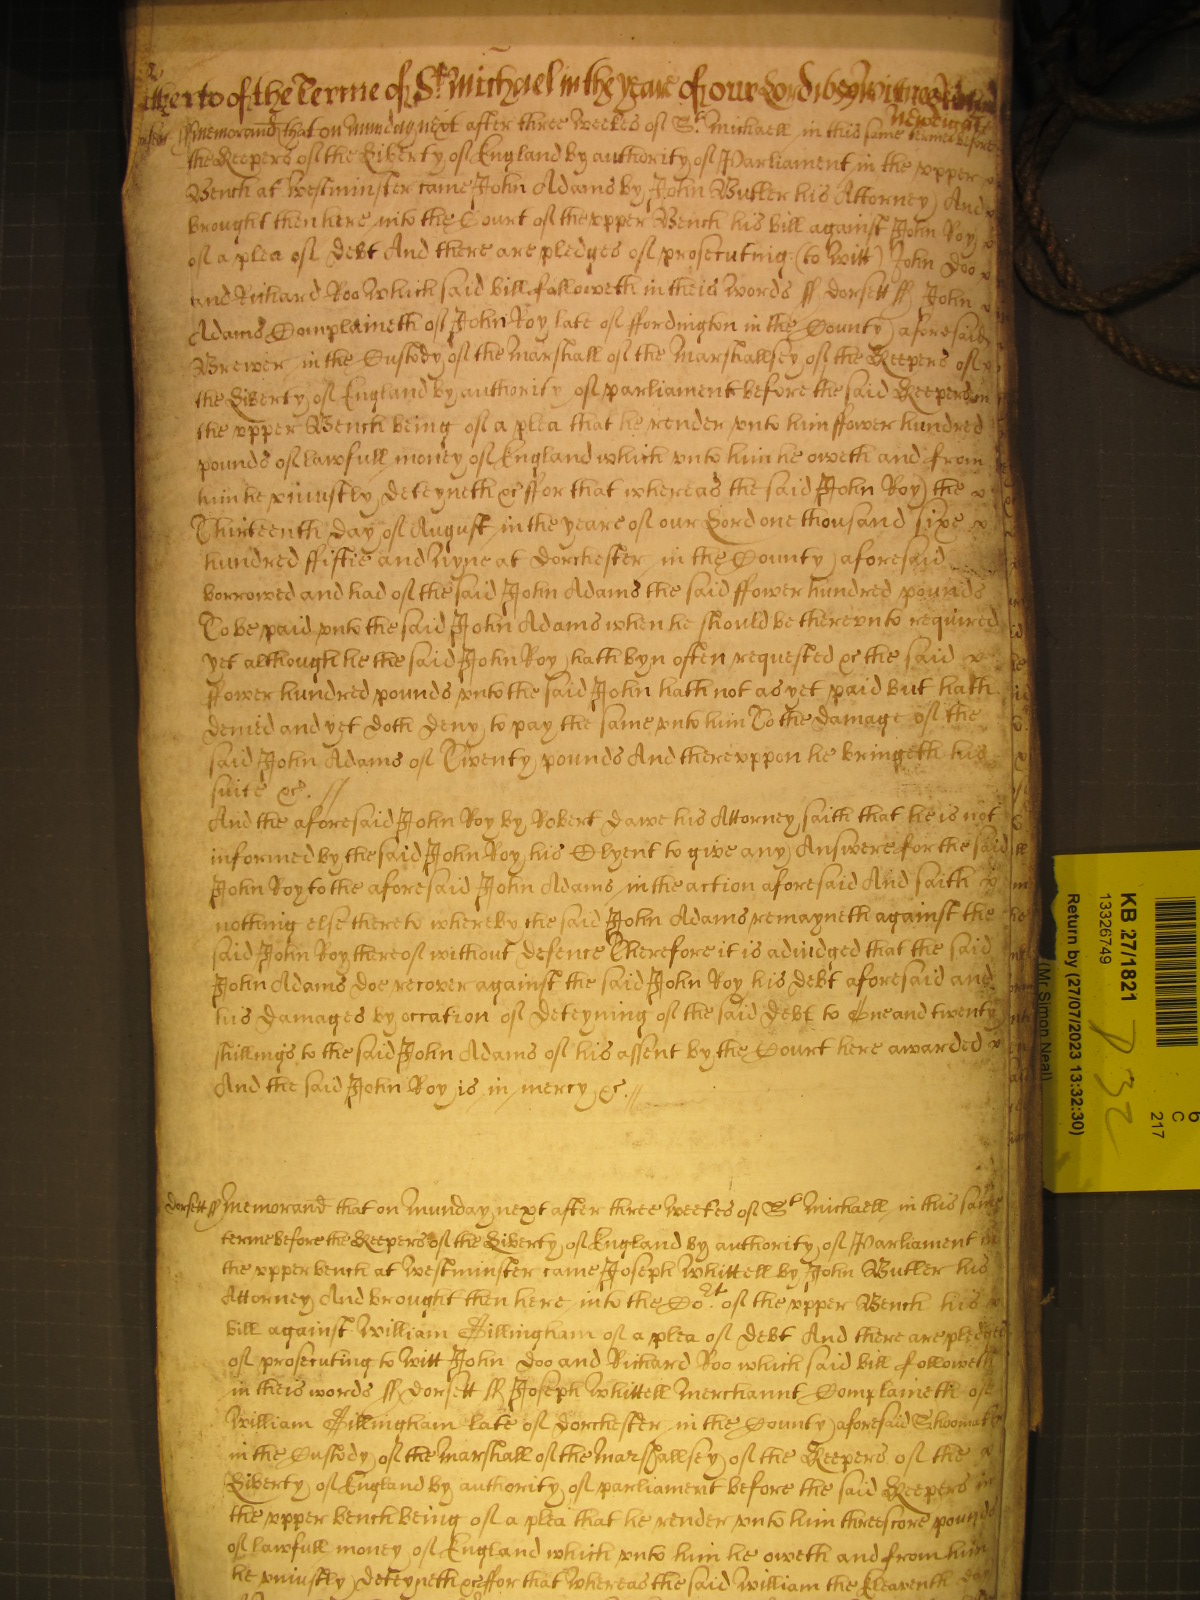 of the Terme of St Michael in the yeare of our Lord 1659
Memorand that on Munday next after three Weekes of St Michaell in this same terme before
the Keepers of the Liberty of England by authority of Parliament in the vpper
Bench at Westminster came John Adams by John Butler his Attorney And
brought then here into the Court of the vpper Bench his bill against John Roy
of a plea of debt And there are pledges of prosecuting (to Witt) John Doo
and Richard Roo Which said bill followeth in theis Words ss Dorsett ss John
Adams Complaineth of John Roy late of ffordington in the County aforesaid
Brewer in the Custody of the Marshall of the Marshallsey of the Keepers of
the Liberty of England by authority of parliament before the said Keepers in
the vpper Bench being of a plea that he render vnto him ffower hundred
pounds of lawfull money of England which vnto him he oweth and from
him he vniustly deteyneth &c ffor that whereas the said John Roy the
Thirteenth day of August in the yeare of our Lord one thousand sixe
hundred ffiftie and Nyne at Dorchester in the County aforesaid
borrowed and had of the said John Adams the said ffower hundred pounds
To be paid vnto the said John Adams when he should be therevnto required
yet although he the said John Roy hath byn often requested &c the said
ffower hundred pounds vnto the said John hath not as yet paid but hath
denied and yet doth deny to pay the same vnto him To the damage of the
said John Adams of Twenty pounds And therevppon he bringeth his
suite &c. //
And the aforesaid John Roy by Robert Dawe his Attorney saith that he is not
informed by the said John Roy his Clyent to give any Answere for the said
John Roy to the aforesaid John Adams in the action aforesaid And saith
nothing else thereto whereby the said John Adams remayneth against the
said John Roy thereof without defence Therefore it is adiudged that the said
John Adams doe recover against the said John Roy his debt aforesaid and
his damages by occation of deteyning of the said debt to One and twenty
shillings to the said John Adams of his assent by the Court here awarded
And the said John Roy is in mercy &c. //
Dorsett ss Memorand that on Munday next after three Weekes of St Michaell in this same
terme before the Keepers of the Liberty of England by authority of Parliament in
the vpper bench at Westminster came Joseph Whittell by John Butler his
Attorney And brought then here into the Cort of the vpper Bench his
bill against William Gillingham of a plea of debt And there are pledges
of prosecuting to Witt John Doo and Richard Roo which said bill followeth
in theis words ss Dorsett ss Joseph Whittell Merchannt Complaineth of
William Gillingham late of Dorchester in the County aforesaid Shoomaker
in the Custody of the Marshall of the Marshallsey of the Keepers of the
Liberty of England by authority of parliament before the said Keepers in
the vpper bench being of a plea that he render vnto him threescore pounds
of lawfull money of England which vnto him he oweth and from him
he vniustly deteyneth &c ffor that Whereas the said William the Eleaventh day
KB 27/1821
13326749
Return by (27/07/2023 13:32:30)
(Mr Simon Neal)
P 32
6
C
217